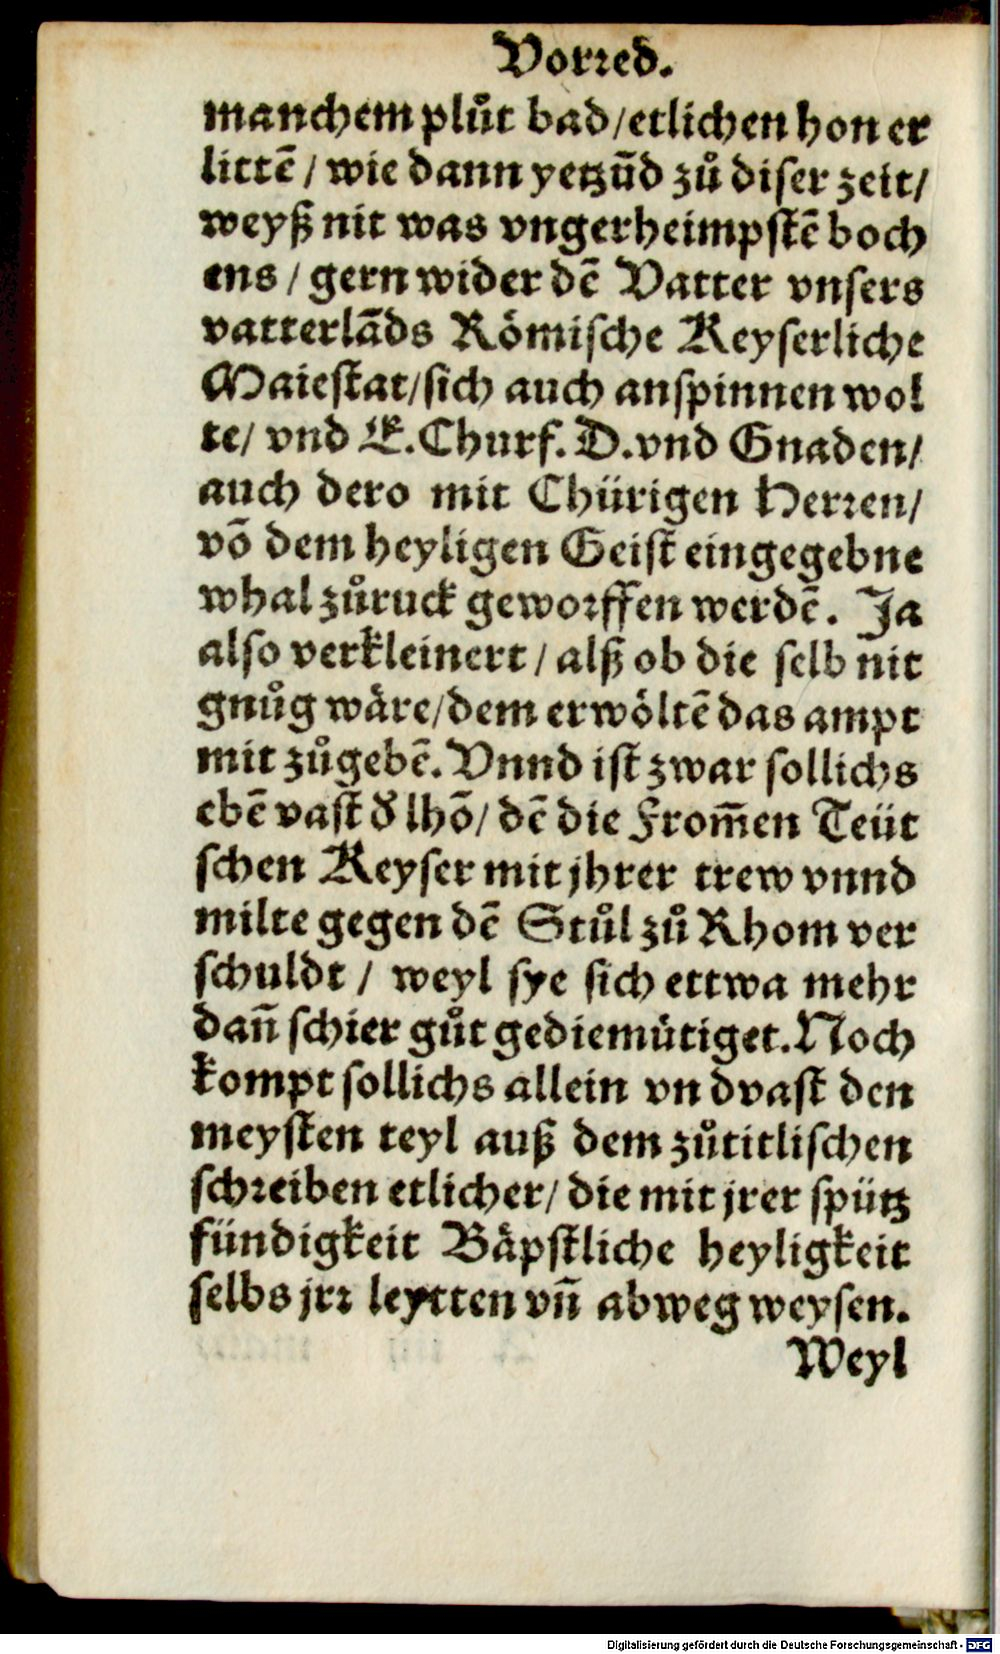 Vorꝛed.
manchem plůt bad/etlichen hon er
littẽ/ wie dann yetzũd zů diser zeit/
weyß nit was vngerheimpstẽ boch
ens/ gern wider dẽ Vatter vnsers
vatterlãds Römische Keyserliche
Maiestat/sich auch anspinnen wol
te/ vnd E.Churf.D.vnd Gnaden/
auch dero mit Chürigen Herꝛen/
võ dem heyligen Geist eingegebne
whal zůruck gewoꝛffen werdẽ. Ja
also verkleinert/ alß ob die selb nit
gnůg wäre/dem erwöltẽ das ampt
mit zůgebẽ. Vnnd ist zwar sollichs
ebẽ vast d̕ lhõ/ dẽ die From̃en Teüt
schen Keyser mit jhrer trew vnnd
milte gegen dẽ Stůl zů Rhom ver
schuldt/ weyl sye sich ettwa mehr
dañ schier gůt gediemütiget. Noch
kompt sollichs allein vn dvast den
meysten teyl auß dem zůtitlischen
schꝛeiben etlicher/ die mit jrer spütz
fündigkeit Bäpstliche heyligkeit
selbs jrꝛ leytten vñ abweg weysen.
Weyl
Digitalisierung gefördert durch die Deutsche Forschungsgemeinschaft - DFG